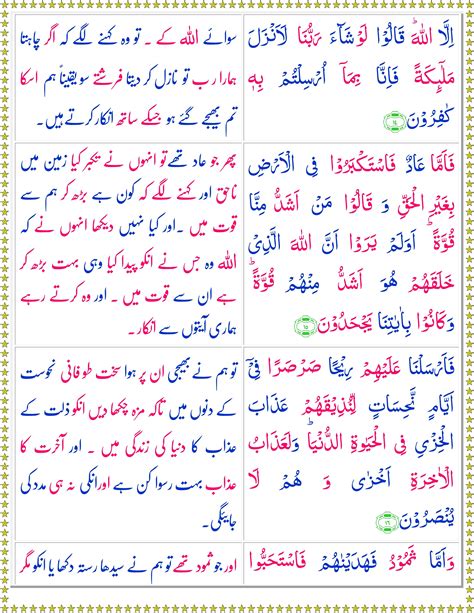 اِلَّا اللّٰهَ ؕ قَالُوْا لَوْ شَآءَ رَبُّنَا لَاَنْزَلَ
مَلٰٓىِٕكَةً فَاِنَّا بِمَاۤ اُرْسِلْتُمْ بِهٖ
كٰفِرُوْنَ ١٤
سوائے اللہ کے ۔ تو وہ کہنے لگے کہ اگر چاہتا
ہمارا رب تو نازل کر دیتا فرشتے سو یقیناً ہم اسکا
تم بھیجے گئے ہو جسکے ساتھ انکار کرتے ہیں۔
فَاَمَّا عَادٌ فَاسْتَكْبَرُوْا فِی الْاَرْضِ
بِغَیْرِ الْحَقِّ وَ قَالُوْا مَنْ اَشَدُّ مِنَّا
قُوَّةً ؕ اَوَلَمْ یَرَوْا اَنَّ اللّٰهَ الَّذِیْ
خَلَقَهُمْ هُوَ اَشَدُّ مِنْهُمْ قُوَّةً ؕ
وَكَانُوْا بِاٰیٰتِنَا یَجْحَدُوْنَ ١٥
پھر جو عاد تھے تو انہوں نے تکبر کیا زمین میں
ناحق اور کہنے لگے کہ کون ہے بڑھ کر ہم سے
قوت میں ۔ اور کیا نہیں دیکھا انہوں نے کہ
اللہ وہ جس نے انکو پیدا کیا وہی بہت بڑھ کر
ہے ان سے قوت میں ۔ اور وہ کرتے رہے
ہماری آیتوں سے انکار۔
فَاَرْسَلْنَا عَلَیْهِمْ رِیْحًا صَرْصَرًا فِیْۤ
اَیَّامٍ نَّحِسَاتٍ لِّنُذِیْقَهُمْ عَذَابَ
الْخِزْیِ فِی الْحَیٰوةِ الدُّنْیَا ؕ وَلَعَذَابُ
الْاٰخِرَةِ اَخْزٰی وَ هُمْ لَا
یُنْصَرُوْنَ ١٦
تو ہم نے بھیجی ان پر ہوا سخت طوفانی نحوست
کے دنوں میں تاکہ مزہ چکھا دیں انکو ذلت کے
عذاب کا دنیا کی زندگی میں ۔ اور آخرت کا
عذاب بہت رسوا کن ہے اور انکی نہ ہی مدد کی
جائیگی۔
وَاَمَّا ثَمُوْدُ فَهَدَیْنٰهُمْ فَاسْتَحَبُّوا
اور جو ثمود تھے تو ہم نے سیدھا رستہ دکھا یا انکو مگر